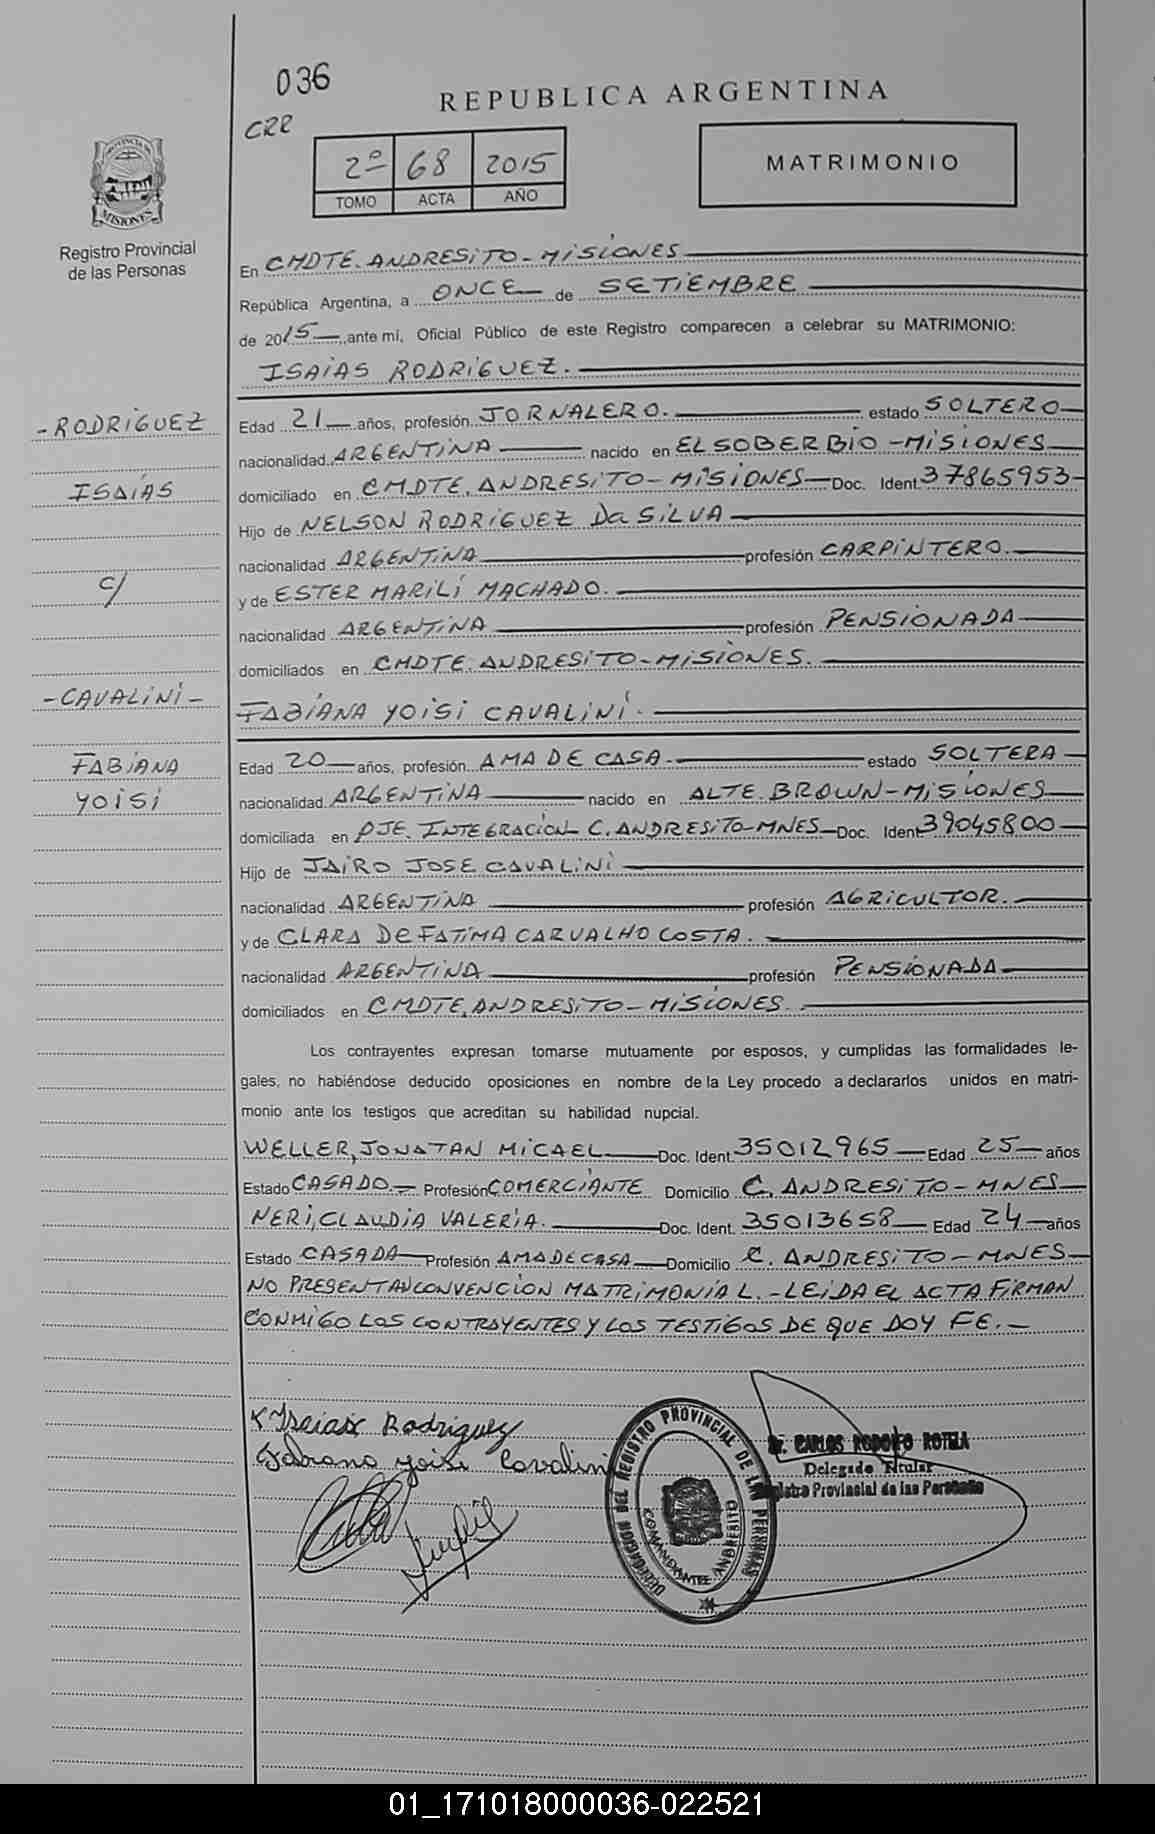 036
REPUBLICA ARGENTINA
CRR
2º 68 2015
TOMO ACTA AÑO
MATRIMONIO
PROVINCIA DE
MISIONES
Registro Provincial
de las Personas
En CMDTE. ANDRESITO - MISIONES
República Argentina, a ONCE de SETIEMBRE
de 2015, ante mí, Oficial Público de este Registro comparecen a celebrar su MATRIMONIO:
ISAIAS RODRIGUEZ.
- RODRIGUEZ
ISAÍAS
c/
- CAVALINI -
FABIANA
YOISI
Edad 21 años, profesión JORNALERO. estado SOLTERO
nacionalidad ARGENTINA nacido en EL SOBERBIO - MISIONES
domiciliado en CMDTE. ANDRESITO - MISIONES Doc. Ident. 37865953
Hijo de NELSON RODRIGUEZ Da SILVA
nacionalidad ARGENTINA profesión CARPINTERO.
y de ESTER MARILÍ MACHADO.
nacionalidad ARGENTINA profesión PENSIONADA
domiciliados en CMDTE. ANDRESITO - MISIONES.
FABIANA YOISI CAVALINI.
Edad 20 años, profesión AMA DE CASA. estado SOLTERA
nacionalidad ARGENTINA nacido en ALTE. BROWN - MISIONES
domiciliada en PJE. INTEGRACION C. ANDRESITO - MNES Doc. Ident 39045800
Hijo de JAIRO JOSE CAVALINI
nacionalidad ARGENTINA profesión AGRICULTOR.
y de CLARA DE FATIMA CARVALHO COSTA.
nacionalidad ARGENTINA profesión PENSIONADA
domiciliados en CMDTE. ANDRESITO - MISIONES.
Los contrayentes expresan tomarse mutuamente por esposos, y cumplidas las formalidades le-
gales, no habiéndose deducido oposiciones en nombre de la Ley procedo a declararlos unidos en matri-
monio ante los testigos que acreditan su habilidad nupcial.
WELLER, JONATAN MICAEL Doc. Ident. 35012965 Edad 25 años
Estado CASADO. Profesión COMERCIANTE Domicilio C. ANDRESITO - MNES
NERI, CLAUDIA VALERIA. Doc. Ident. 35013658 Edad 24 años
Estado CASADA Profesión AMA DE CASA Domicilio C. ANDRESITO - MNES
NO PRESENTAN CONVENCION MATRIMONIAL. - LEIDA EL ACTA FIRMAN
CONMIGO LOS CONTRAYENTES Y LOS TESTIGOS DE QUE DOY FE. -
Isaias Rodriguez
Fabiana yoisi Cavalini
DELEGACION DEL REGISTRO PROVINCIAL DE LAS PERSONAS
COMANDANTE ANDRESITO
Dr. CARLOS RODOLFO ROTELA
Delegado Titular
Registro Provincial de las Personas
01_171018000036-022521